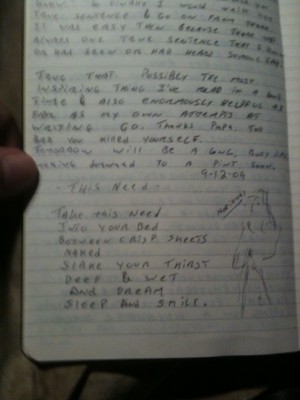 I would
true sentence & go on from there.
It was easy then because there was
always one true sentence that I
or had seen or had heard someone say.
True that. Possibly the most
inspiring thing I've read in a long
time & also enormously helpful as
ever as my own attempts at
writing go. Thanks Papa. Too
bad you killed yourself.
Tomorrow will be a long, busy day
looking forward to a pint. Soon.
9-12-09
- This Need -
Take this need
Into your bed
Between crisp sheets
Naked
Slake your thirst
Deep & wet
And dream
Sleep and smile.